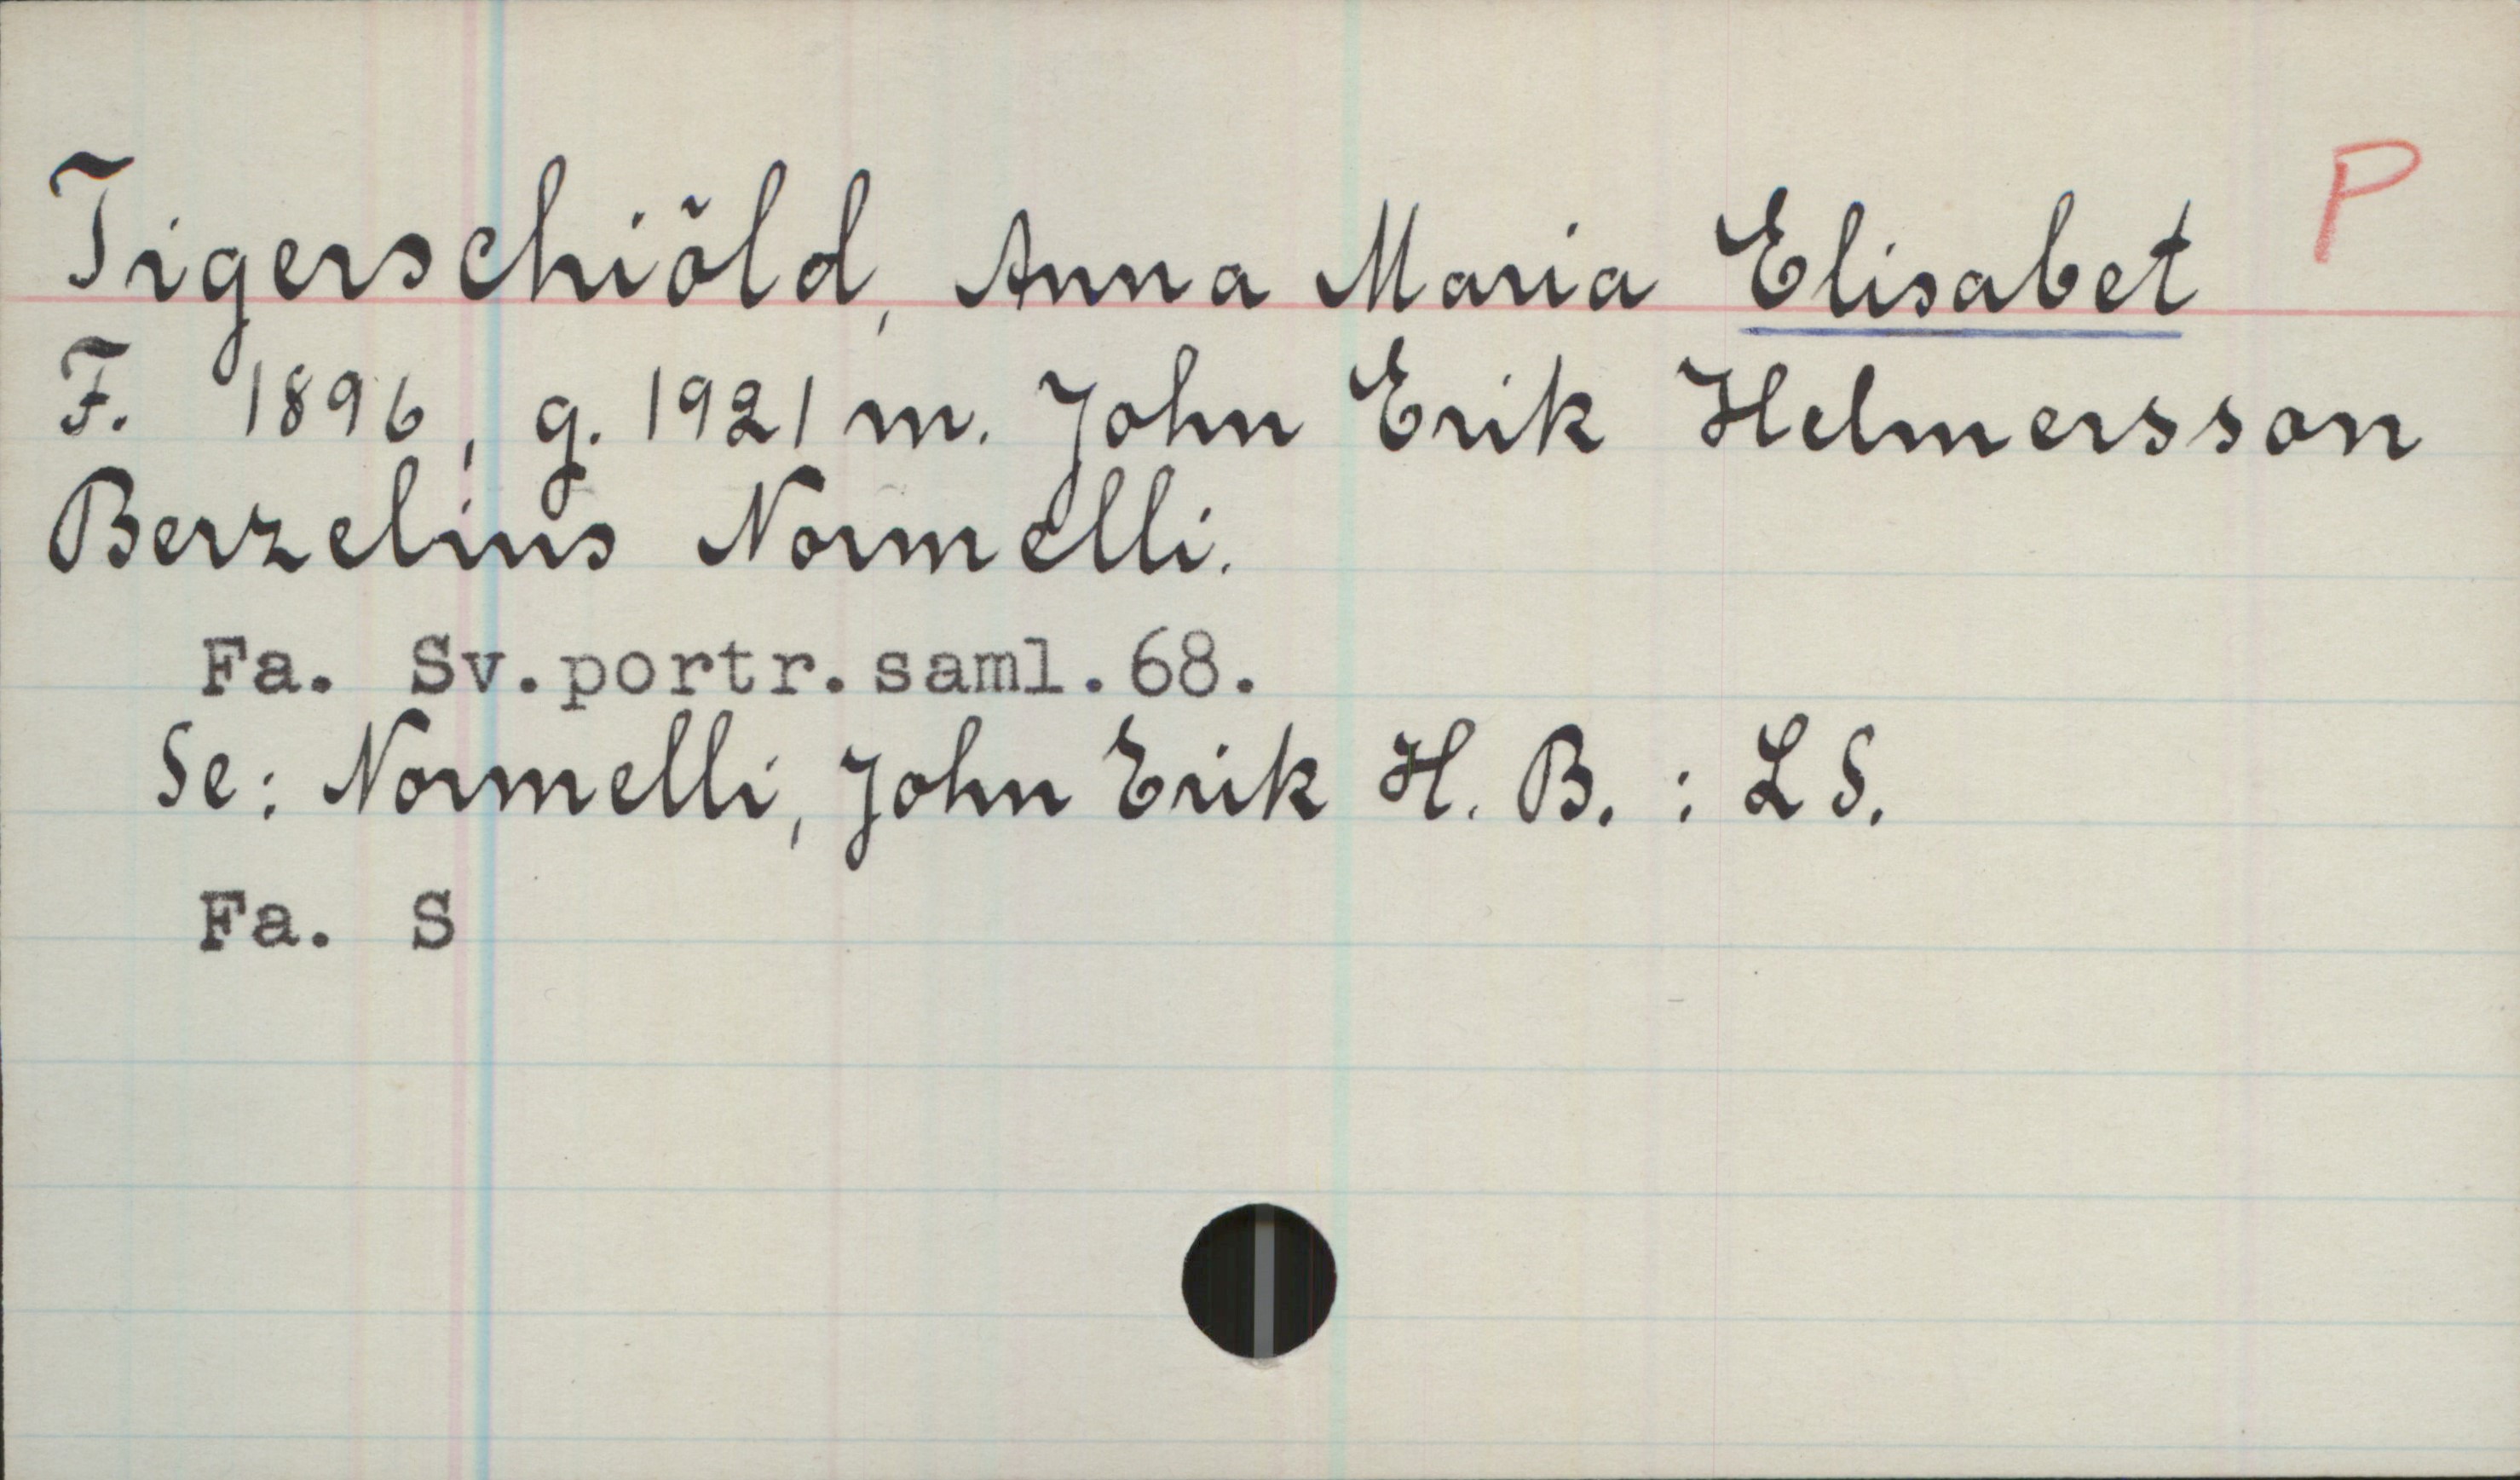 Tigerschiöld, Anna Maria Elisabet P
F. 1896, g. 1921 m. John Erik Helmersson
Berzelius Normelli.
Fa. Sv.portr.saml.68.
Se: Normelli, John Erik H. B. : L S.
Fa. S